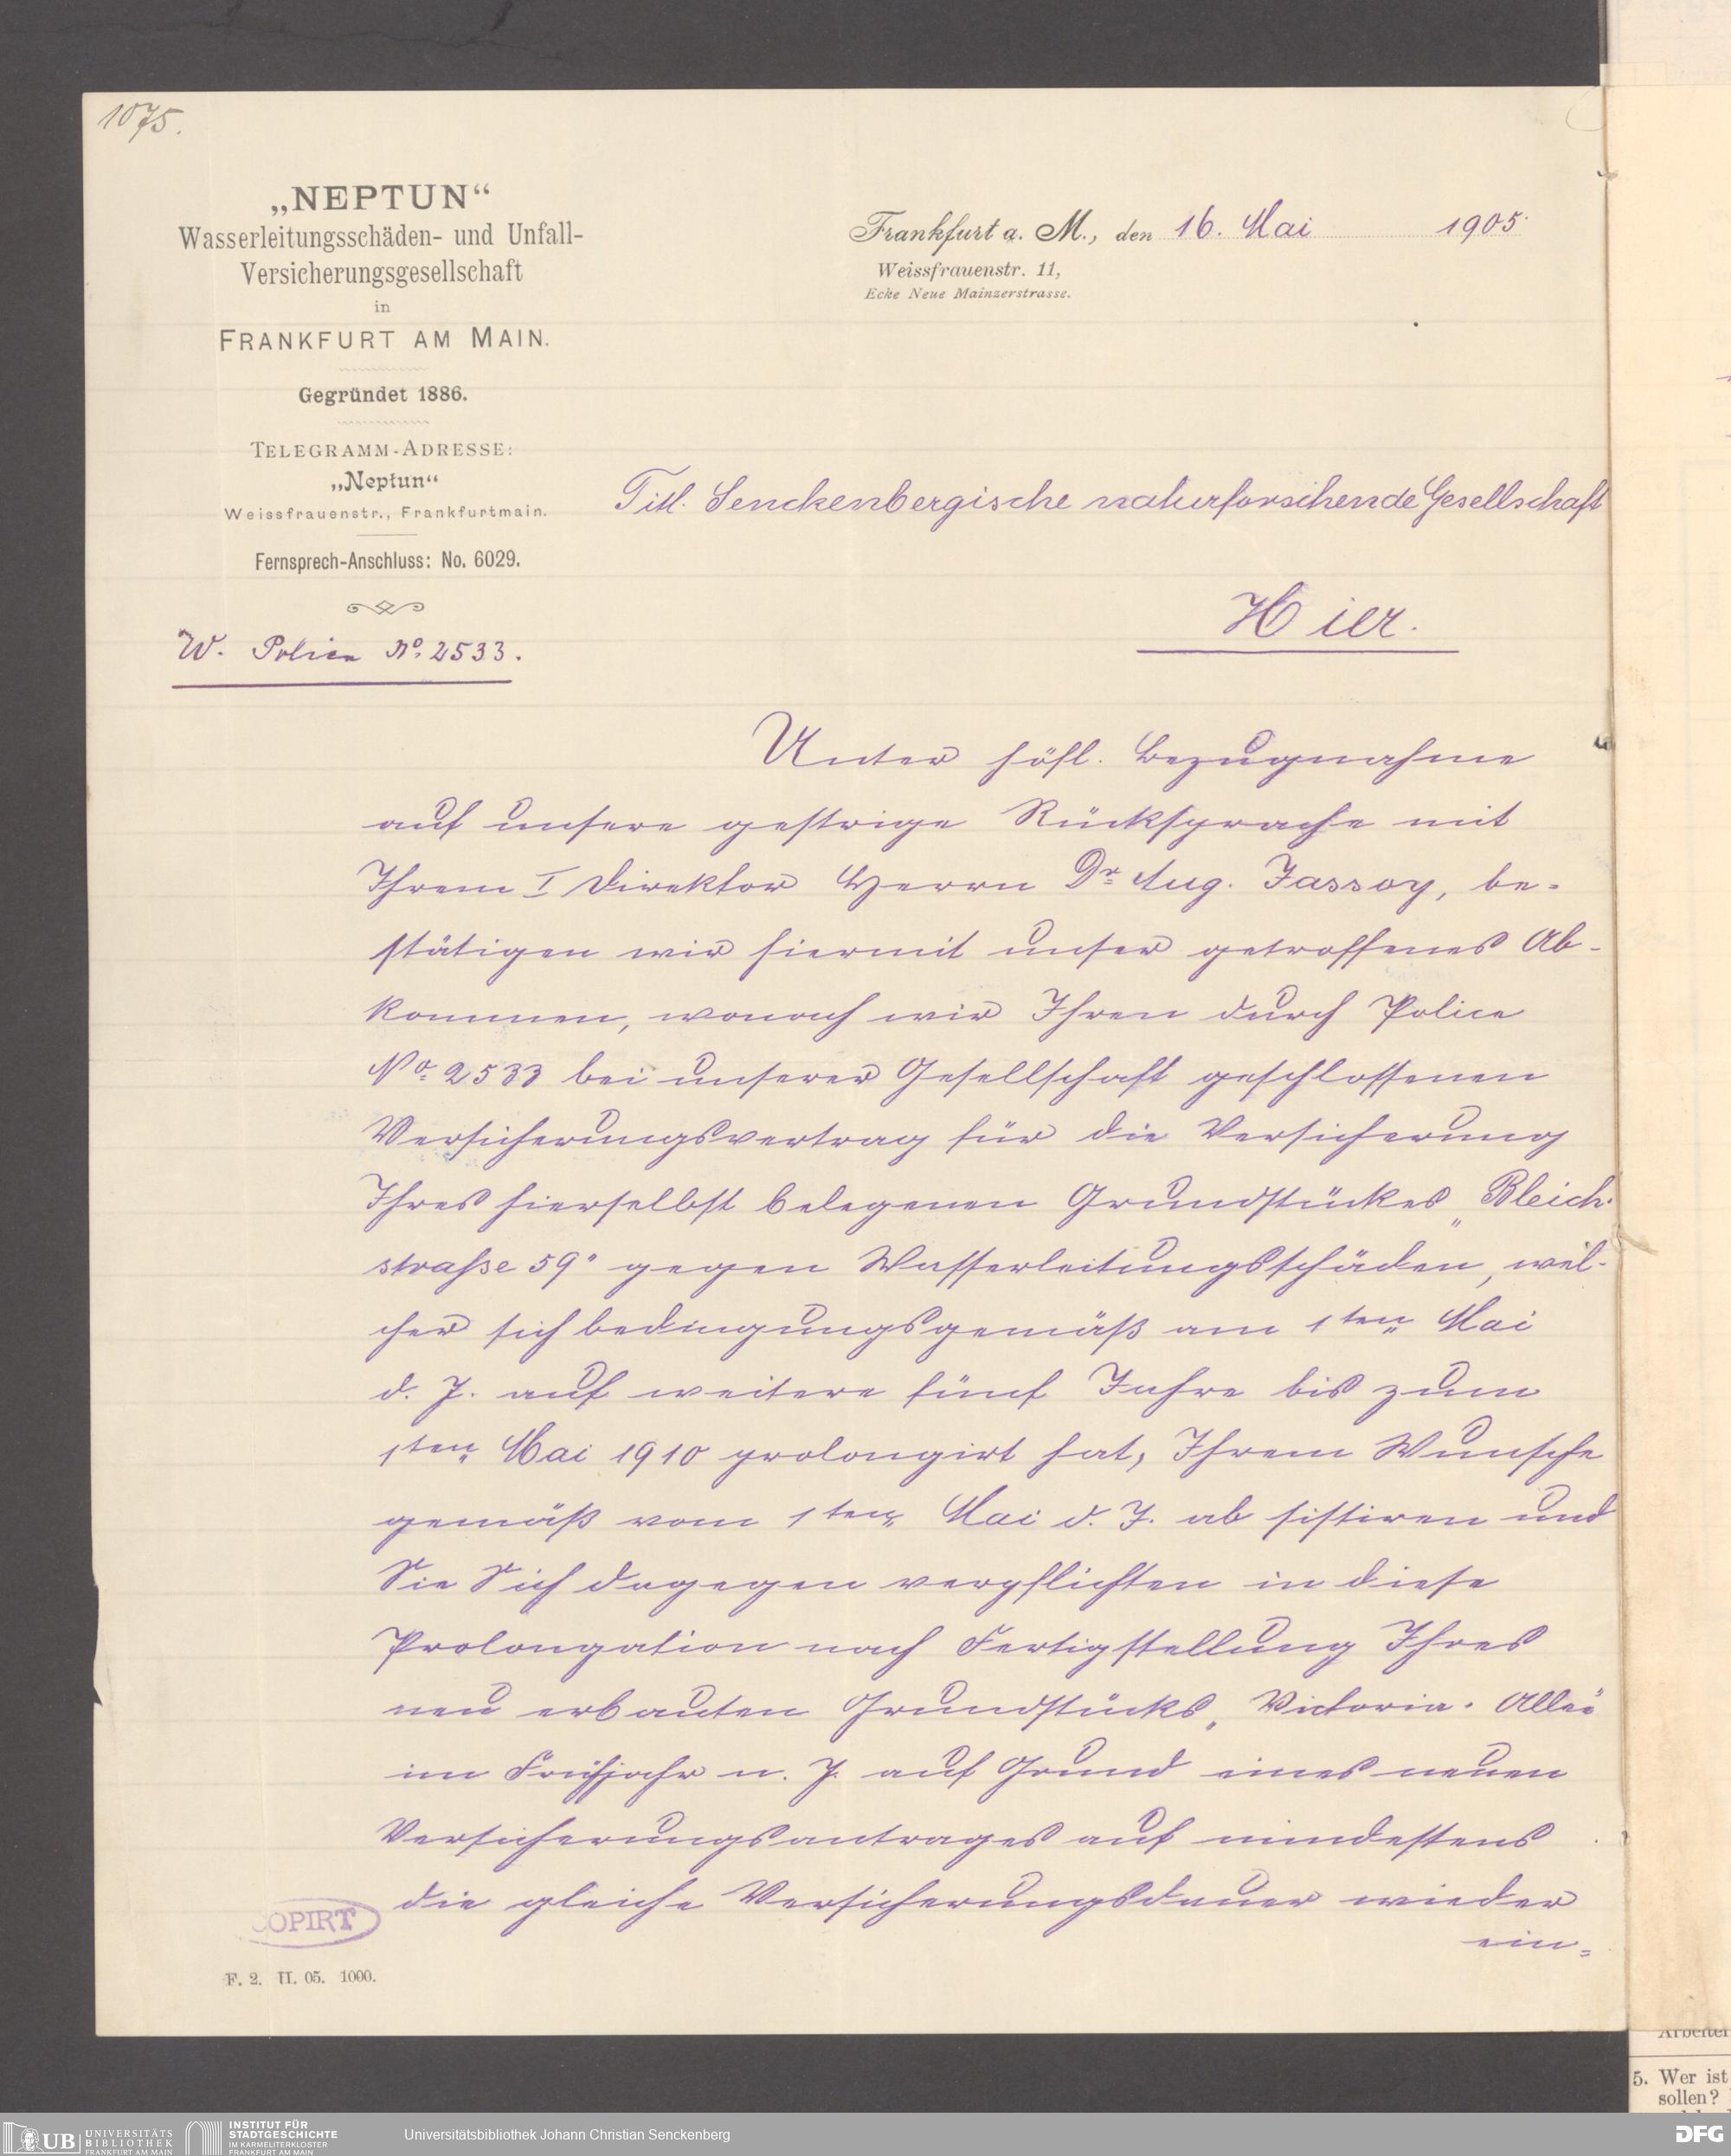 1075.
„NEPTUN“
Wasserleitungsschäden- und Unfall-
Versicherungsgesellschaft
in
FRANKFURT AM MAIN.
Gegründet 1886.
TELEGRAMM-ADRESSE:
„Neptun“
Weissfrauenstr., Frankfurtmain.
Fernsprech-Anschluss: No. 6029.
W. Police No. 2533.
Frankfurt a. M., den 16. Mai 1905.
Weissfrauenstr. 11,
Ecke Neue Mainzerstrasse.
Titl. Senckenbergische naturforschende Gesellschaft
Hier.
Unter höfl. Bezugnahme
auf unsere gestrige Rücksprache mit
Ihrem I Direktor Herrn Dr. Aug. Jassoy, be-
stätigen wir hiermit unser getroffenes Ab-
kommen, wonach wir Ihren durch Police
No. 2533 bei unserer Gesellschaft geschlossenen
Versicherungsvertrag für die Versicherung
Ihres hierselbst belegenen Grundstückes „Bleich-
straße 59“ gegen Wasserleitungsschäden, wel-
cher sich bedingungsgemäß am 1ten Mai
d. J. auf weitere fünf Jahre bis zum
1ten Mai 1910 prolongirt hat, Ihrem Wunsche
gemäß vom 1ten Mai d. J. ab sistiren und
Sie Sich dagegen verpflichten in diese
Prolongation nach Fertigstellung Ihres
neu erbauten Grundstücks „Victoria-Allee“
im Frühjahr n. J. auf Grund eines neuen
Versicherungsantrages auf mindestens
die gleiche Versicherungsdauer wieder
ein-
COPIRT
F. 2. II. 05. 1000.
Arbeiter
5. Wer ist
sollen?
UB UNIVERSITÄTS
BIBLIOTHEK
FRANKFURT AM MAIN
INSTITUT FÜR
STADTGESCHICHTE
IM KARMELITERKLOSTER
FRANKFURT AM MAIN
Universitätsbibliothek Johann Christian Senckenberg
DFG